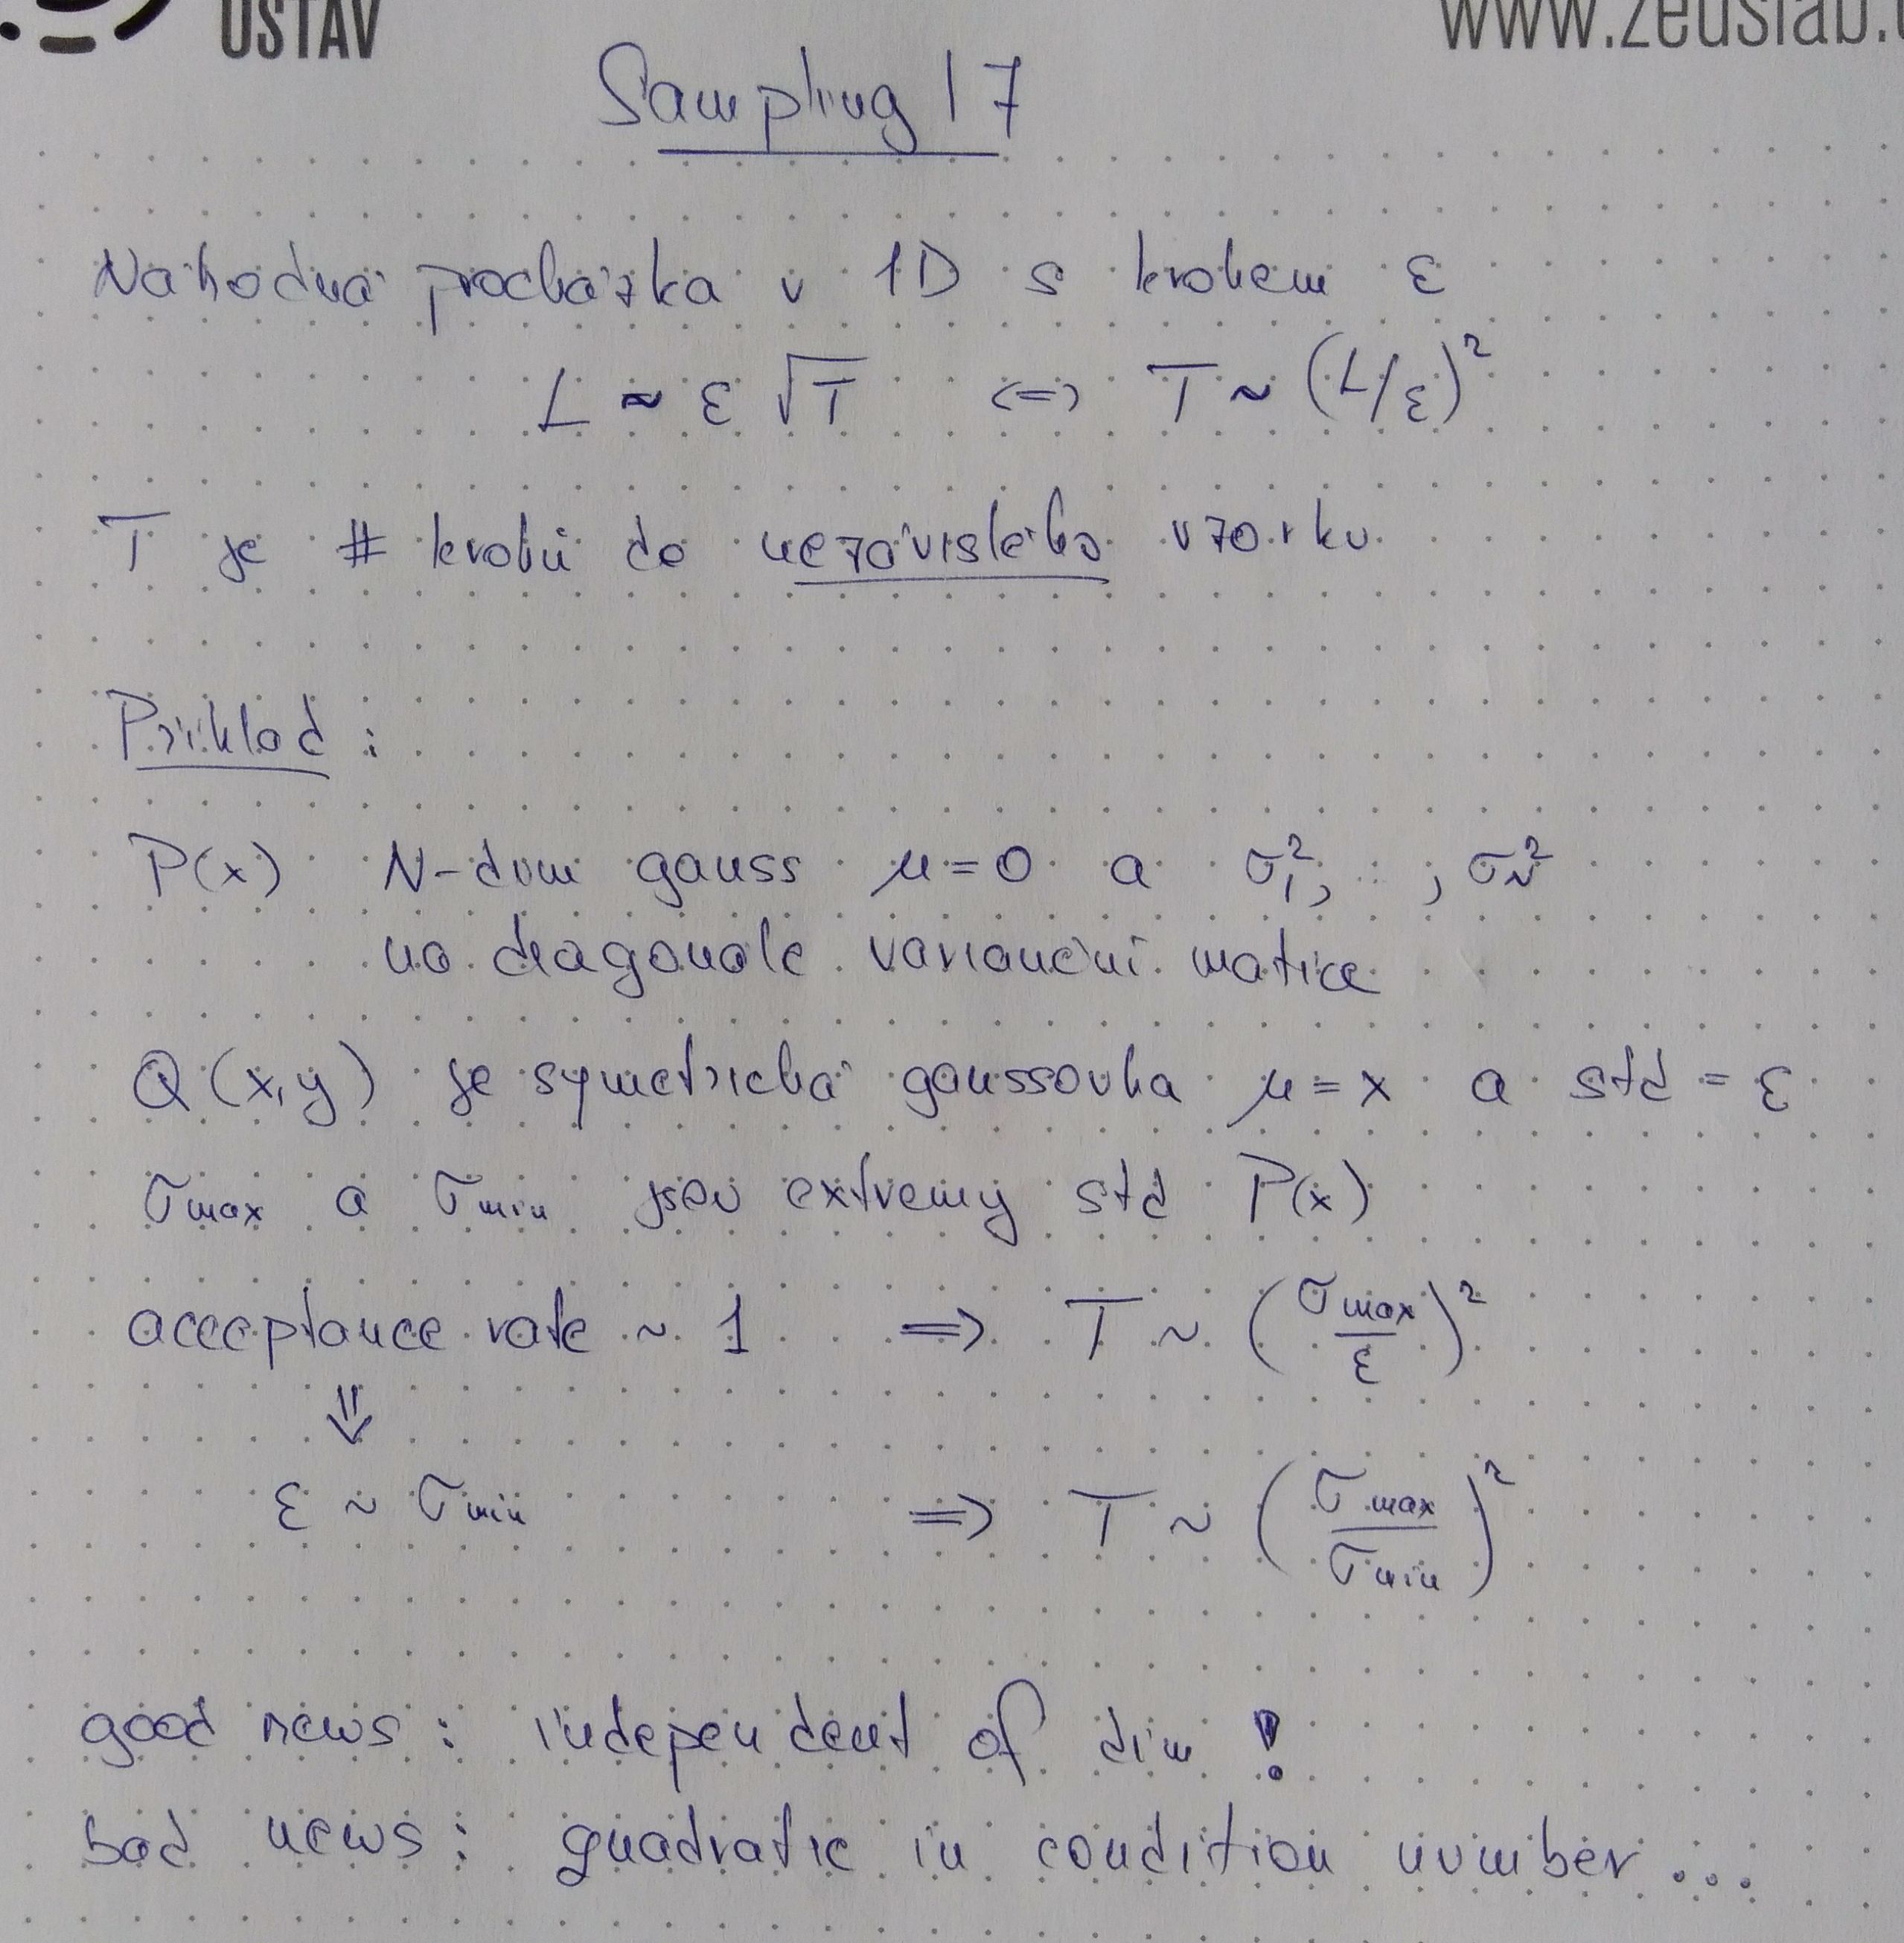 ÚSTAV
www.zeuslab.
Sampling 17
Náhodná procházka v 1D s krokem ε
L ≈ ε √T <=> T ~ (L/ε)²
T je # kroků do nezávislého vzorku
Příklad :
P(x) N-dim gauss μ=0 a σ₁², , σ_N²
na diagonále varianční matice
Q(x,y) je symetrická gaussovka μ=x a std = ε
σmax a σmin jsou extremy std P(x)
acceptance rate ~ 1 => T ~ (σmax/ε)²
⇓
ε ~ σmin => T ~ (σmax/σmin)²
good news : independent of dim !
bad news : quadratic in condition number...